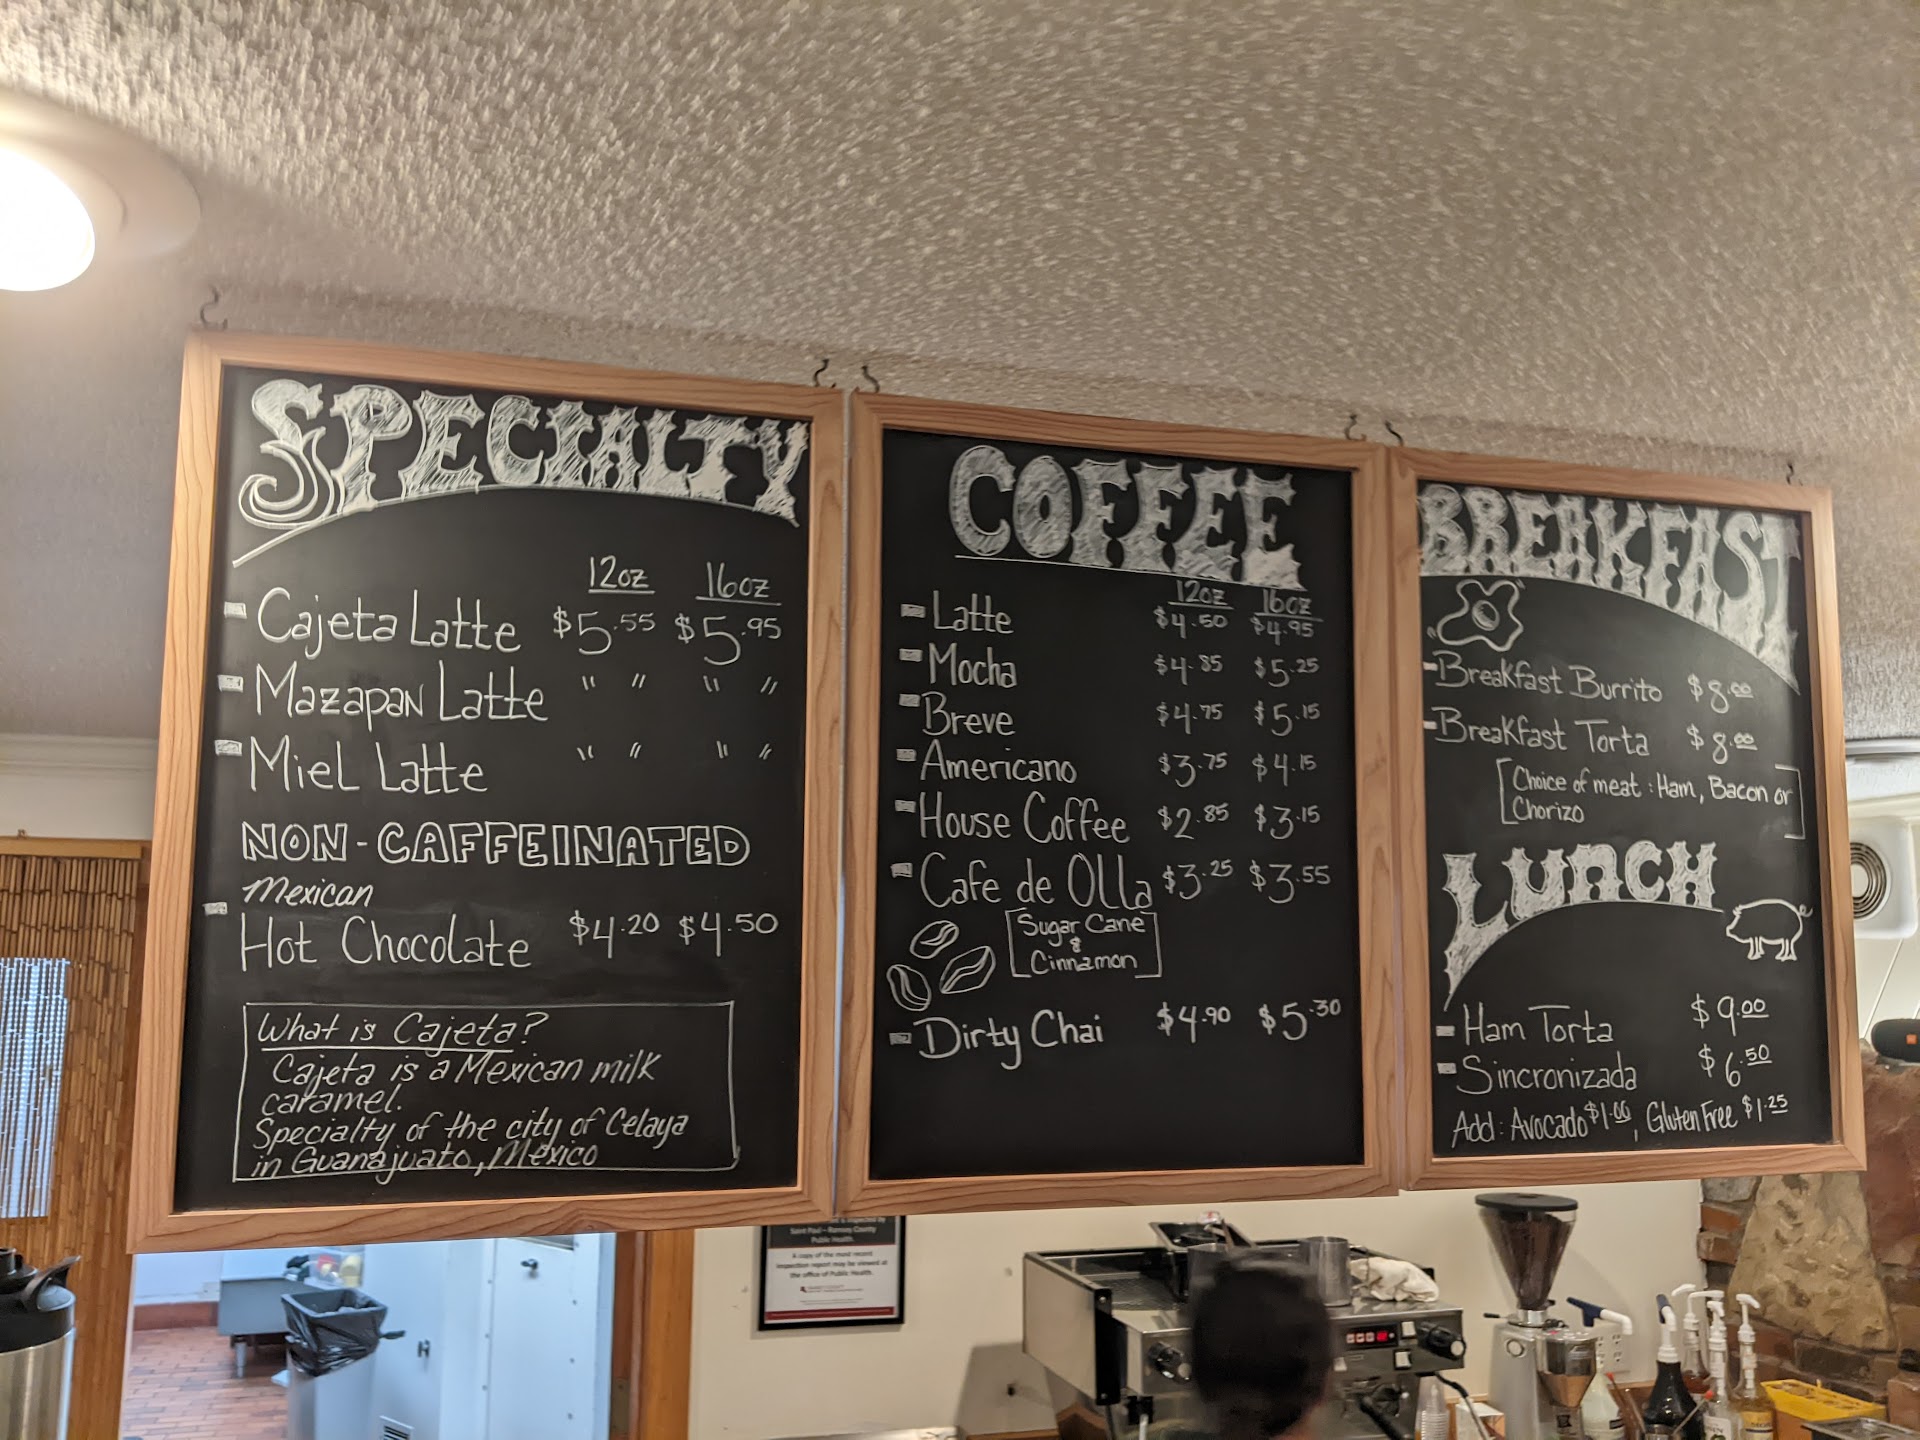 SPECIALTY
12oz 16oz
Cajeta Latte $5.55 $5.95
Mazapan Latte " " " "
Miel Latte " " " "
NON-CAFFEINATED
Mexican
Hot Chocolate $4.20 $4.50
What is Cajeta?
Cajeta is a Mexican milk
caramel.
Specialty of the city of Celaya
in Guanajuato, México
COFFEE
12oz 16oz
Latte $4.50 $4.95
Mocha $4.85 $5.25
Breve $4.75 $5.15
Americano $3.75 $4.15
House Coffee $2.85 $3.15
Cafe de Olla $3.25 $3.55
[Sugar Cane
&
Cinnamon]
Dirty Chai $4.90 $5.30
BREAKFAST
Breakfast Burrito $8.00
Breakfast Torta $8.00
[Choice of meat: Ham, Bacon or
Chorizo]
LUNCH
Ham Torta $9.00
Sincronizada $6.50
Add: Avocado $1.00, Gluten Free $1.25
Saint Paul - Ramsey County
Public Health.
A copy of the most recent
inspection report may be viewed at
the office of Public Health.